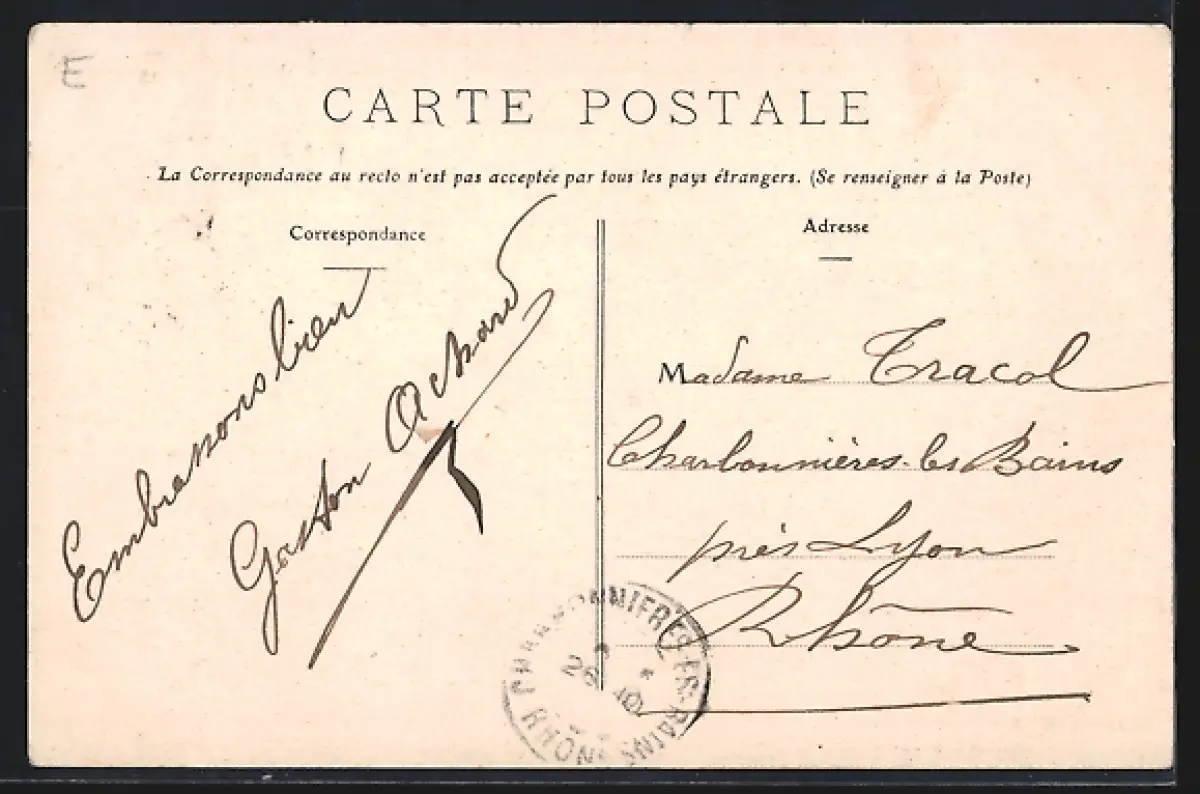 E
CARTE POSTALE
La Correspondance au recto n'est pas acceptée par tous les pays étrangers. (Se renseigner à la Poste)
Correspondance
Embrassons bien
Gaston Achard
Adresse
Madame Tracol
Charbonnières-les Bains
près Lyon
Rhône
CHARBONNIERES-LES-BAINS
26
RHÔNE